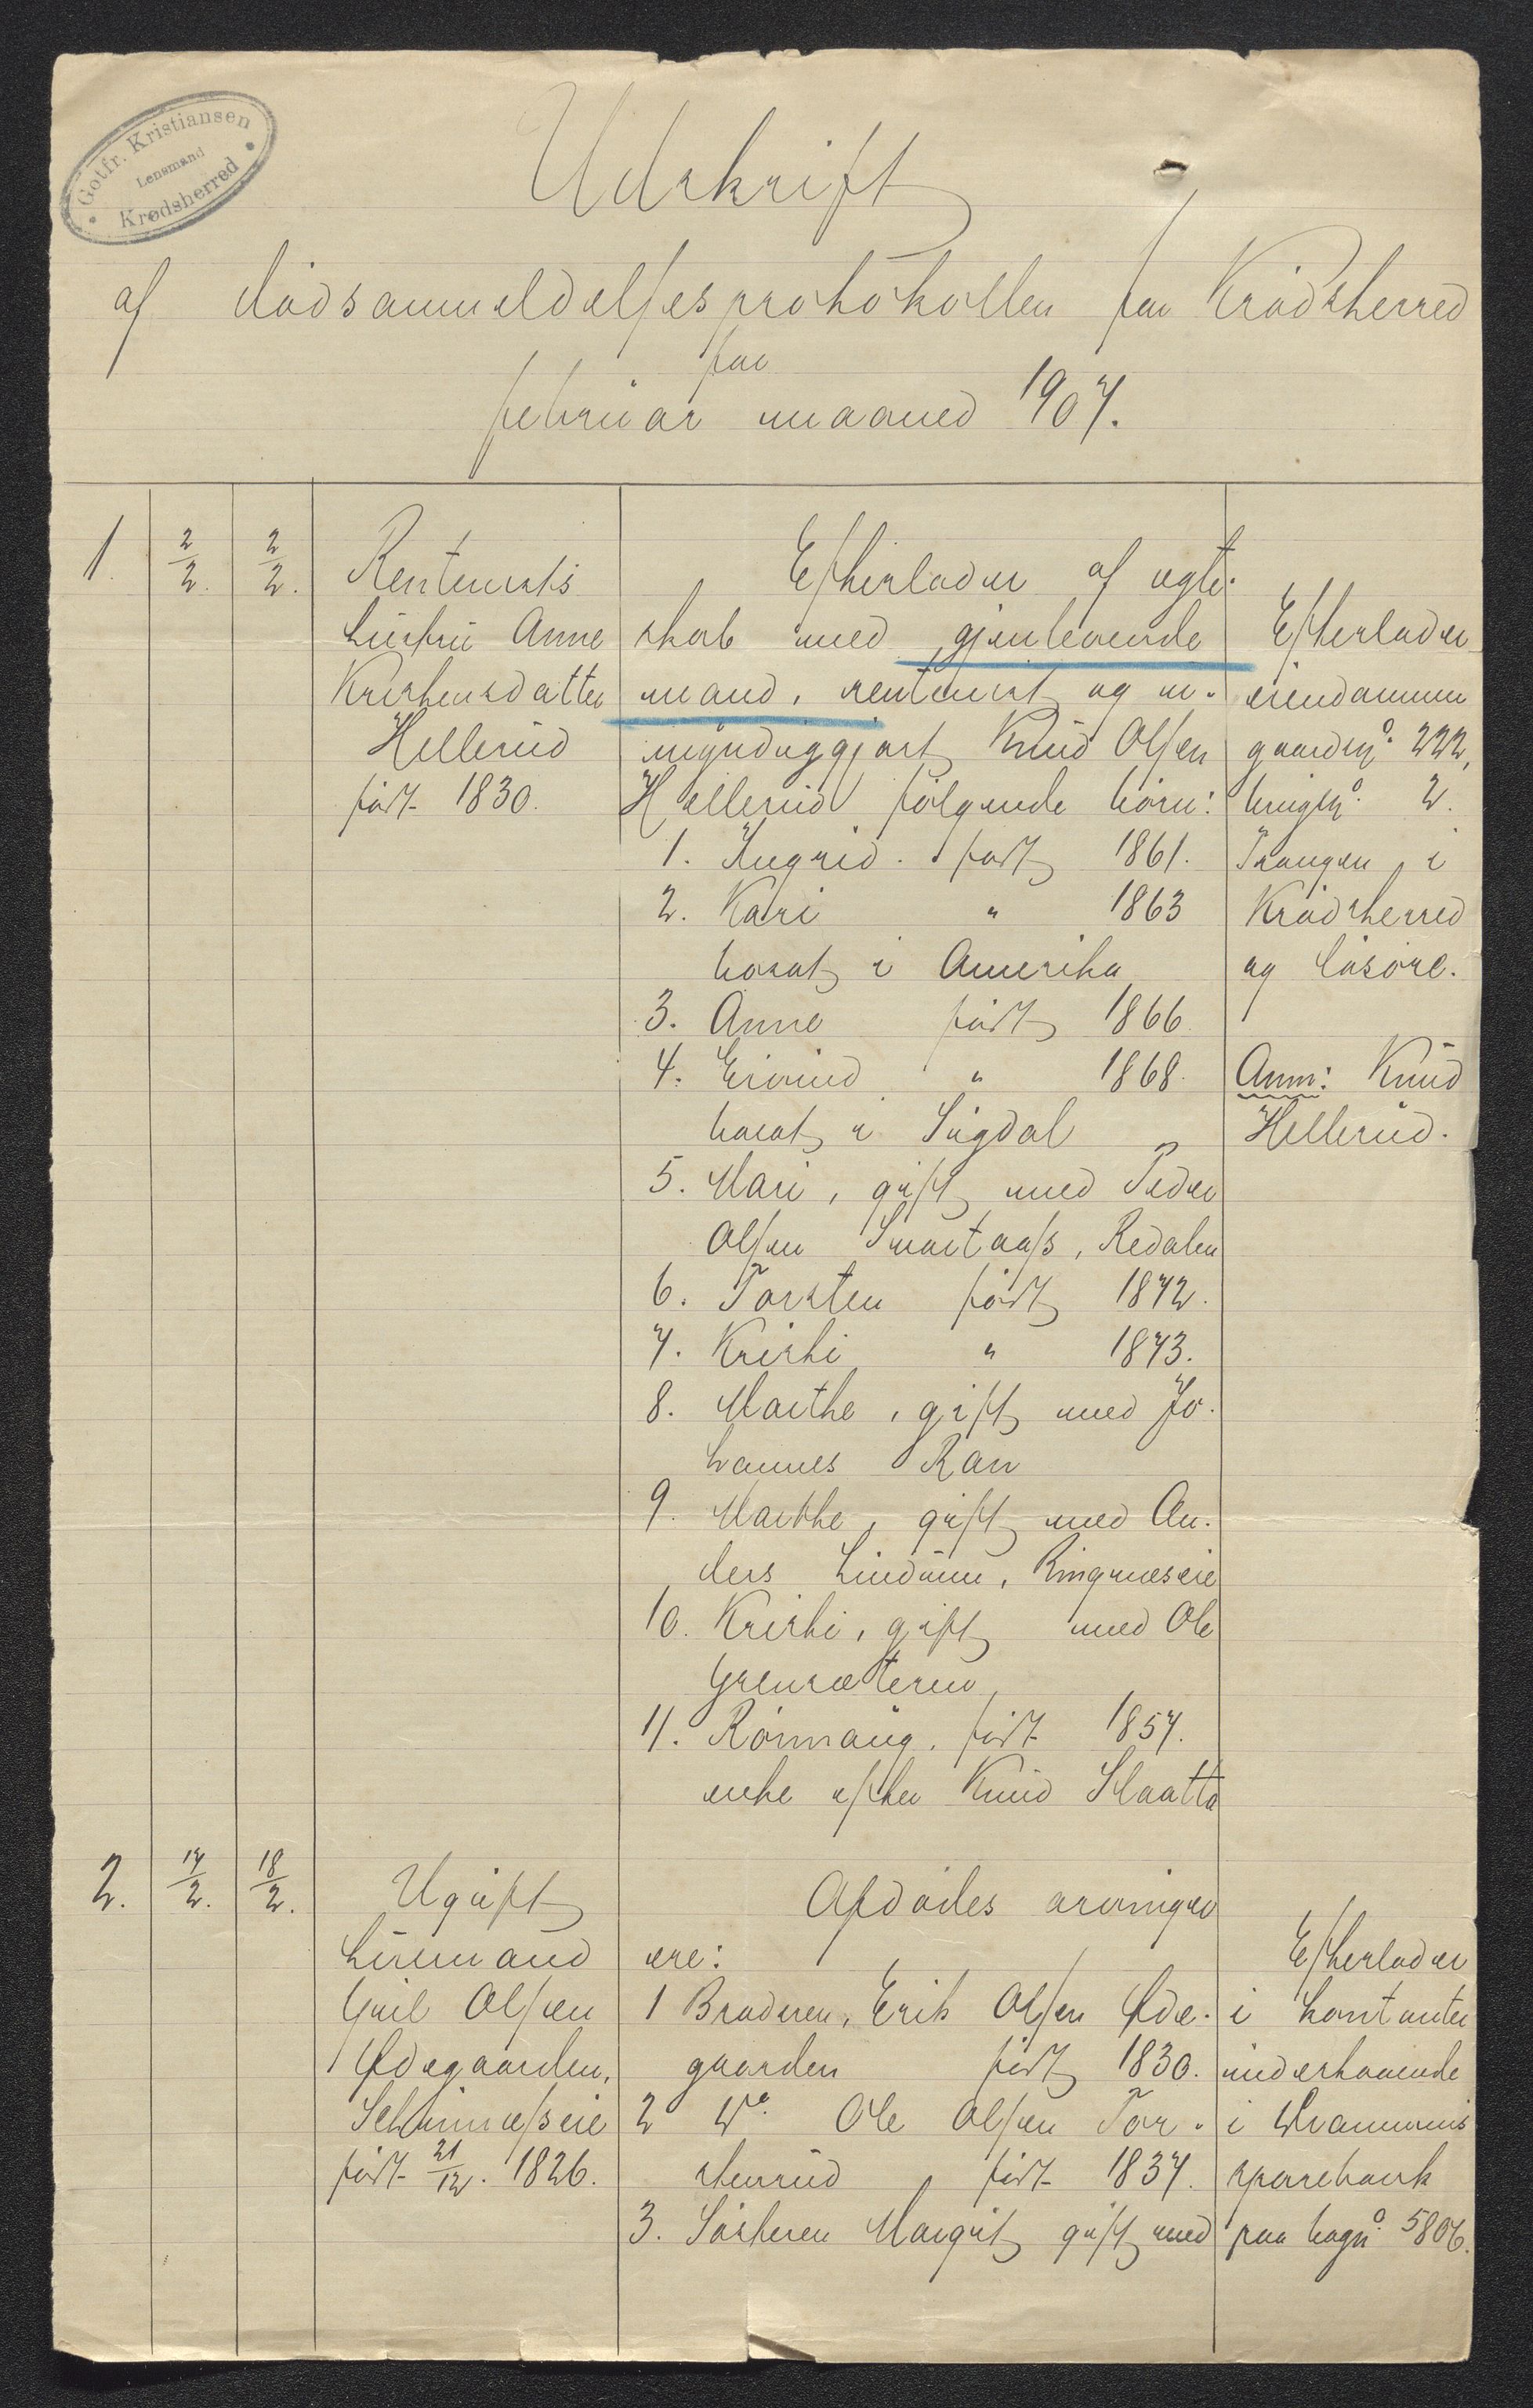 Gotfr. Kristiansen
Lensmand
Krødsherred
Udskrift
af dødsanmeldelsesprotokollen for Krødsherred
for
februar maaned 1907.
1. 2/2. 2/2.
Rentenists
hustru Anne
Kristensdatter
Hellerud
født 1830.
Efterlader af ægte-
skab med gjenlevende
mand, rentenist og u-
myndiggjort Knud Olsen
Hellerud følgende børn:
1. Ingrid. født 1861.
2. Kari " 1863
bosat i Amerika
3. Anne født 1866.
4. Eivind " 1868.
bosat i Sigdal
5. Mari, gift med Peder
Olsen Svartaas, Redalen
6. Torsten født 1872.
7. Kristi " 1873.
8. Marthe, gift med Jo-
hannes Rau
9. Marthe, gift med An-
ders Lindum, Ringnæseie
10. Kristi, gift med Ole
Grensæteren
11. Rønnaug, født 1857.
enke efter Knud Slaatto
Efterlader
eiendommen
gaardsn° 222,
brugsn° 2.
Trangen i
Krødsherred
og løsøre.
Anm: Knud
Hellerud.
2. 17/2. 18/2.
Ugift
husmand
Guul Olsen
Ødegaarden,
født 21/12. 1826.
Afdødes arvinger
ere:
1 Broderen, Erik Olsen Øde-
gaarden født 1830.
2 D° Ole Olsen Tor-
stenrud født 1837.
3. Søsteren Margit gift med
Efterlader
i kontanter
indestaaende
i Drammens
sparebank
paa bogn° 5806.